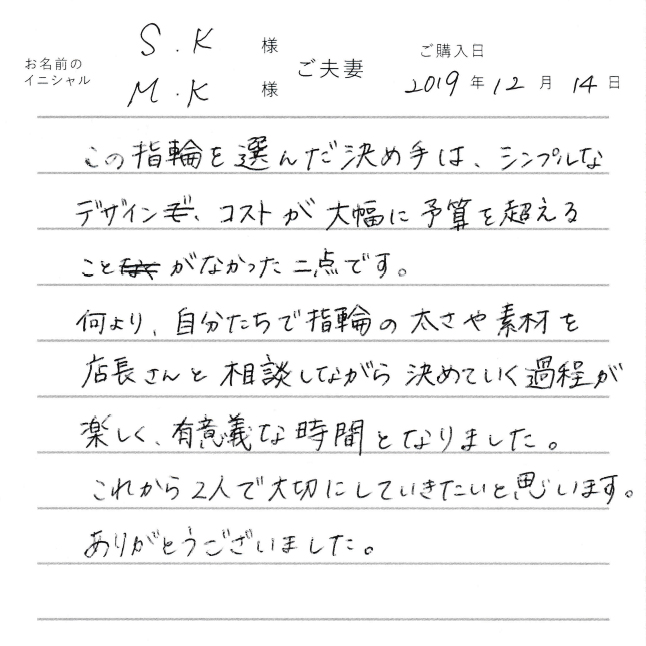 お名前の
イニシャル
S.K 様
M.K 様
ご夫妻
ご購入日
2019年12月14日
この指輪を選んだ決め手は、シンプルな
デザイン、コストが大幅に予算を超える
ことがなかった二点です。
何より、自分たちで指輪の太さや素材を
店長さんと相談しながら決めていく過程が
楽しく、有意義な時間となりました。
これから2人で大切にしていきたいと思います。
ありがとうございました。